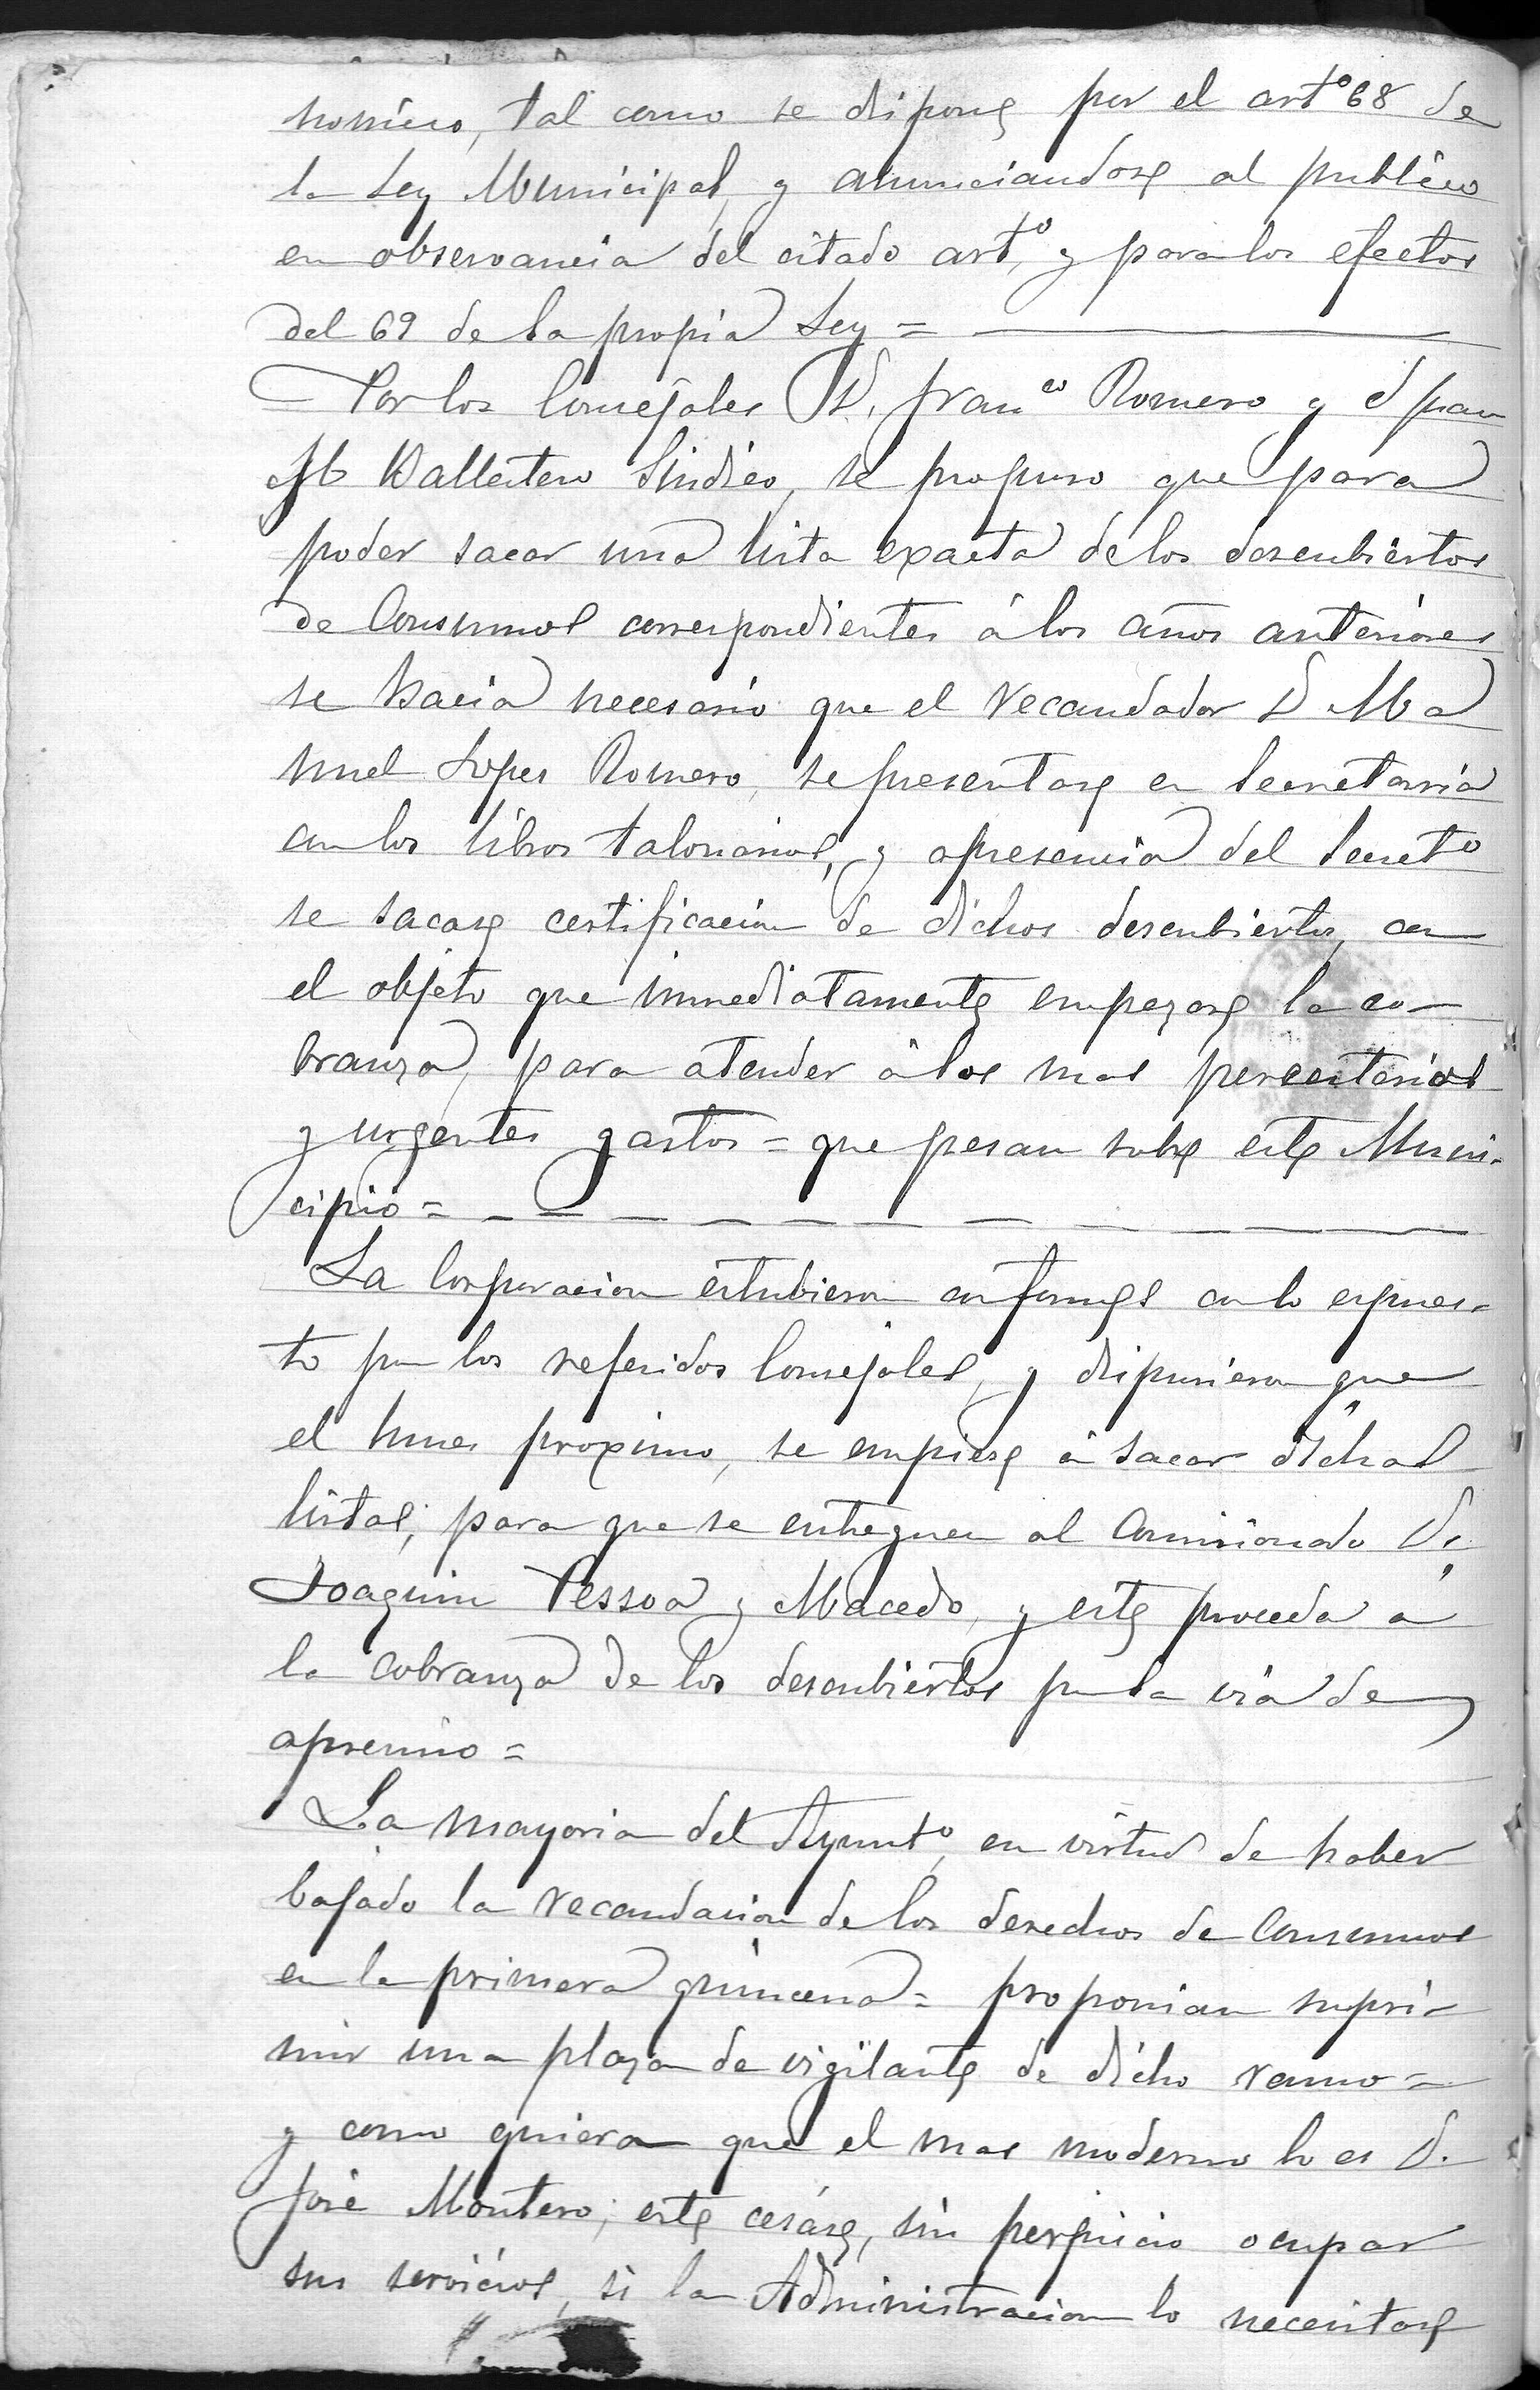 nomico, tal como se dispone por el artº 68 de
la Ley Municipal, y anunciandose al publico
en observancia del citado artº, y para los efectos
del 69 de la propia Ley =
Por los Consejales D. Franco Romero y d Juan
M Ballestero Sindico, se propuso que para
poder sacar una lista exacta de los descubiertos
de Consumos correspondientes á los años anteriores
se hacia necesario que el recaudador D Ma
nuel Lopes Romero, se presentase en Secretaria
con los libros talonarios, y apresencia del Secretº
se sacase certificacion de dichos descubiertos, con
el objeto que inmediatamente empezase la co-
branza, para atender á los mas perentorios
y urgentes gastos = que pesan sobre este Muni-
cipio =
La Corporacion estubieron conformes con lo espues-
to por los referidos Consejales, y dispusieron que
el lunes proximo, se empiese á sacar dichas
listas, para que se entreguen al Comisionado D.
Joaquin Pessoa y Macedo, y este proceda á
la cobranza de los descubiertos por la via de
apremio =
La mayoria del Ayuntº, en virtud de haber
bajado la recaudacion de los derechos de Consumos
en la primera quincena = proponian supri-
mir una plaza de vigilante de dicho ramo =
y como quiera que el mas moderno lo es D.
José Montero; este cesáse, sin perjuicio ocupar
sus servicios, si la Administracion lo necesitase